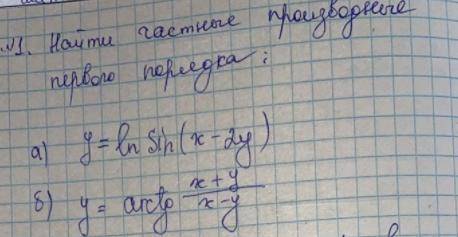 №1. Найти частные производные
первого порядка:
а) y = ln sin(x - 2y)
б) y = arctg \frac{x+y}{x-y}